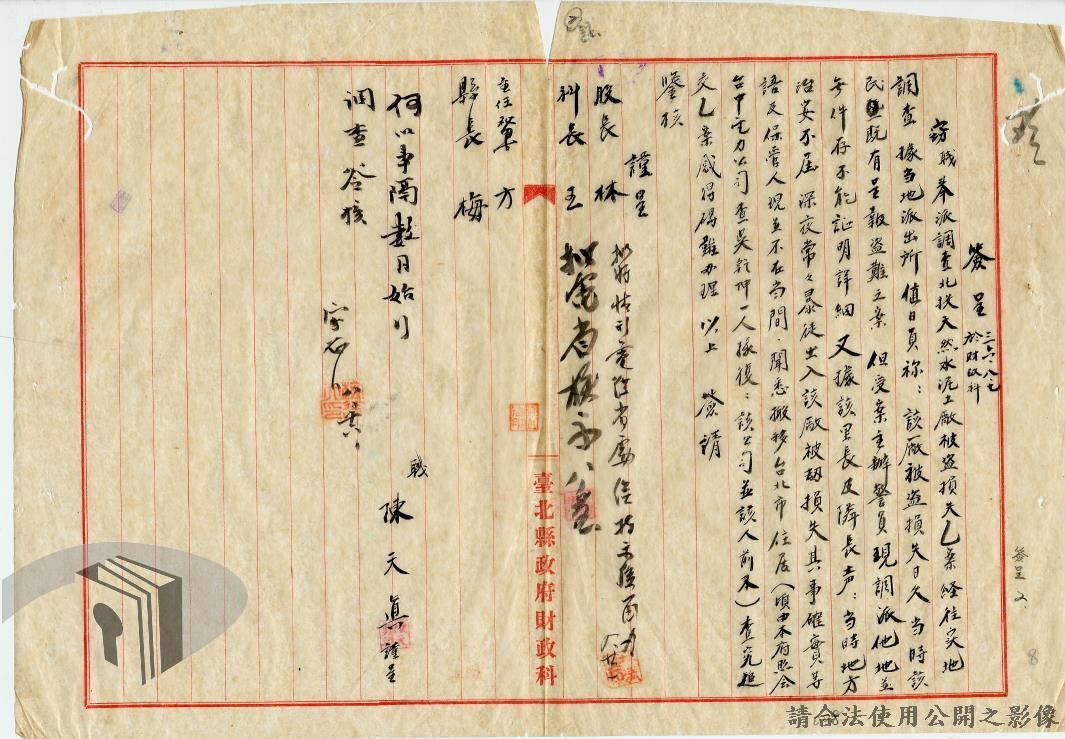 簽呈 於財政科
竊職奉派調查北投天然水泥土廠被盜損失乙案経往实地
調查據当地派出所值日員称：該廠被盜損失日久当時該
民既有呈報盜難立案但受案主辦警員現調派他地並
無件存不能証明詳細又據該里長及隣長声：当時地方
治安不届深夜常々暴徒出入該廠被劫損失其事確實等
語及保管人現並不在当間聞悉搬移台北市住居（頃由本府照会
台中電力公司查吳乾一人據復：該公司並該人前不）查究起
交乙案感得碍難办理以上簽請
鑒核
謹呈
股長 林
科長 王
主任 方
縣長 梅
職 陳天真 謹呈
拟將情形電請省處
拟電省核示
何以事隔數月始行
調查簽核
臺北縣政府財政科
簽呈
8
請合法使用公開之影像